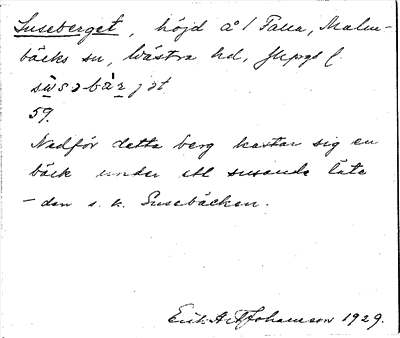 Suseberget, höjd å 1 Falla, Malm-
bäcks sn, Västra hd, Jkpgs l.
59.
Nedför detta berg kastar sig en
bäck under ett susande läte
– den s. k. Susebäcken.
1929.